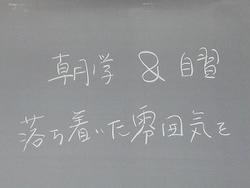 朝学 & 自習
落ち着いた雰囲気を